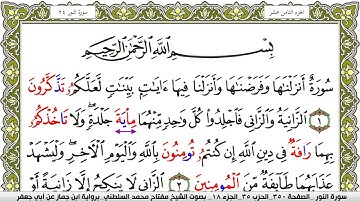 الجزء الثامن عشر
سورة النور ٢٤
بِسْمِ ٱللَّهِ ٱلرَّحْمَٰنِ ٱلرَّحِيمِ
سُورَةٌ أَنزَلْنَٰهَا وَفَرَضْنَٰهَا وَأَنزَلْنَا فِيهَا ءَايَٰتٍۭ بَيِّنَٰتٍ لَّعَلَّكُمُۥ تَذَّكَّرُونَ
١ ٱلزَّانِيَةُ وَٱلزَّانِي فَٱجْلِدُوا۟ كُلَّ وَٰحِدٍ مِّنْهُمَا مِاْيَةَ جَلْدَةٍ وَلَا تَاخُذْكُم
بِهِمَا رَافَةٌ فِي دِينِ ٱللَّهِ إِن كُنتُمُۥ تُومِنُونَ بِٱللَّهِ وَٱلْيَوْمِ ٱلْأَخِرِ وَلْيَشْهَدْ
عَذَابَهُمَا طَآئِفَةٌ مِّنَ ٱلْمُومِنِينَ ٢ ٱلزَّانِي لَا يَنكِحُ إِلَّا زَانِيَةً أَوْ
سورة النور الصفحة ٣٥٠ الحزب ٣٥ الجزء ١٨ بصوت الشيخ مفتاح محمد السلطني برواية ابن جماز عن أبي جعفر